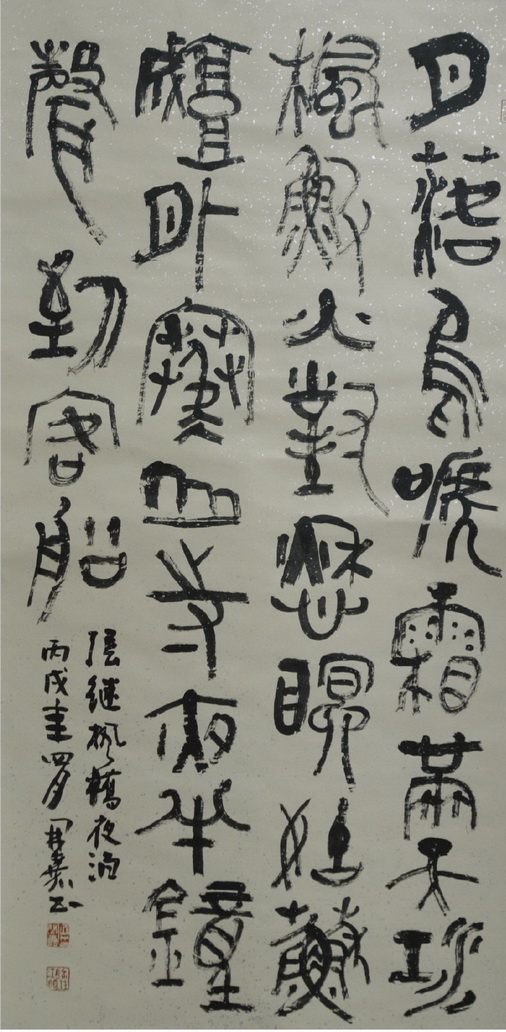 月落烏啼霜滿天江
楓漁火對愁眠姑蘇
城外寒山寺夜半鐘
聲到客船
張继枫橋夜泊
丙戌四月